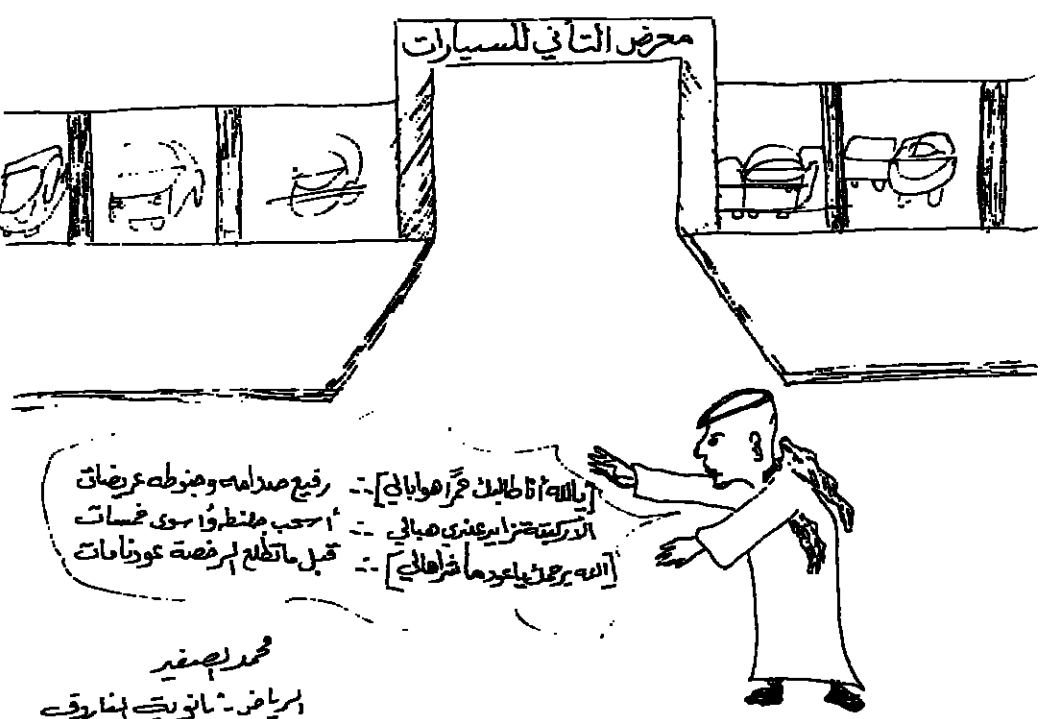 معرض التأني للسيارات
[يالله أنا طالبك حمرًا هوا بالي] -:- رفيع صدامه وجنوطه عريضات
الذركيتة تزايد عندي هبالي -:- أسحب ملنطه وأسوي خمسات
[الله يرحمك يا عود ما شراهالي] -:- قبل ماتطلع الرخصة عودنا مات
محمد الصغير
الرياض - ثانوية الفاروق